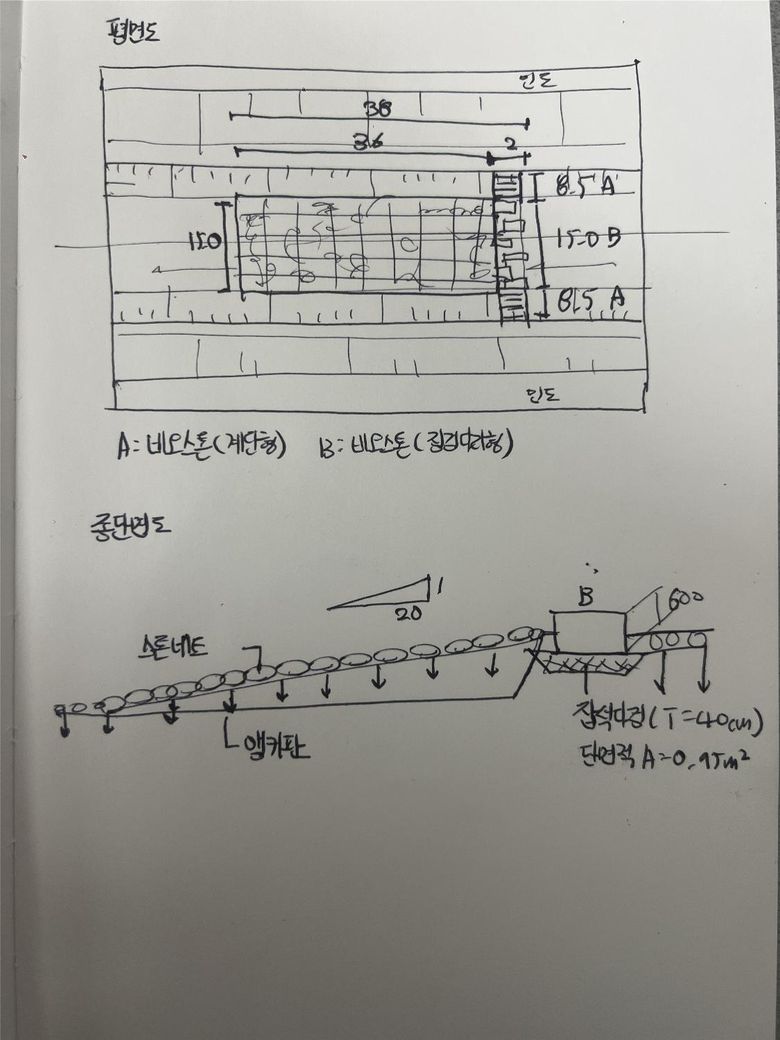 평면도
인도
38
36 2
8.5 A
15.0 15.0 B
8.5 A
인도
A: 비오스톤(계단형) B: 비오스톤(징검다리형)
종단면도
1
20
B
600
스톤네트
앵카판
잡석다짐(T=40cm)
단면적 A=0.95m²